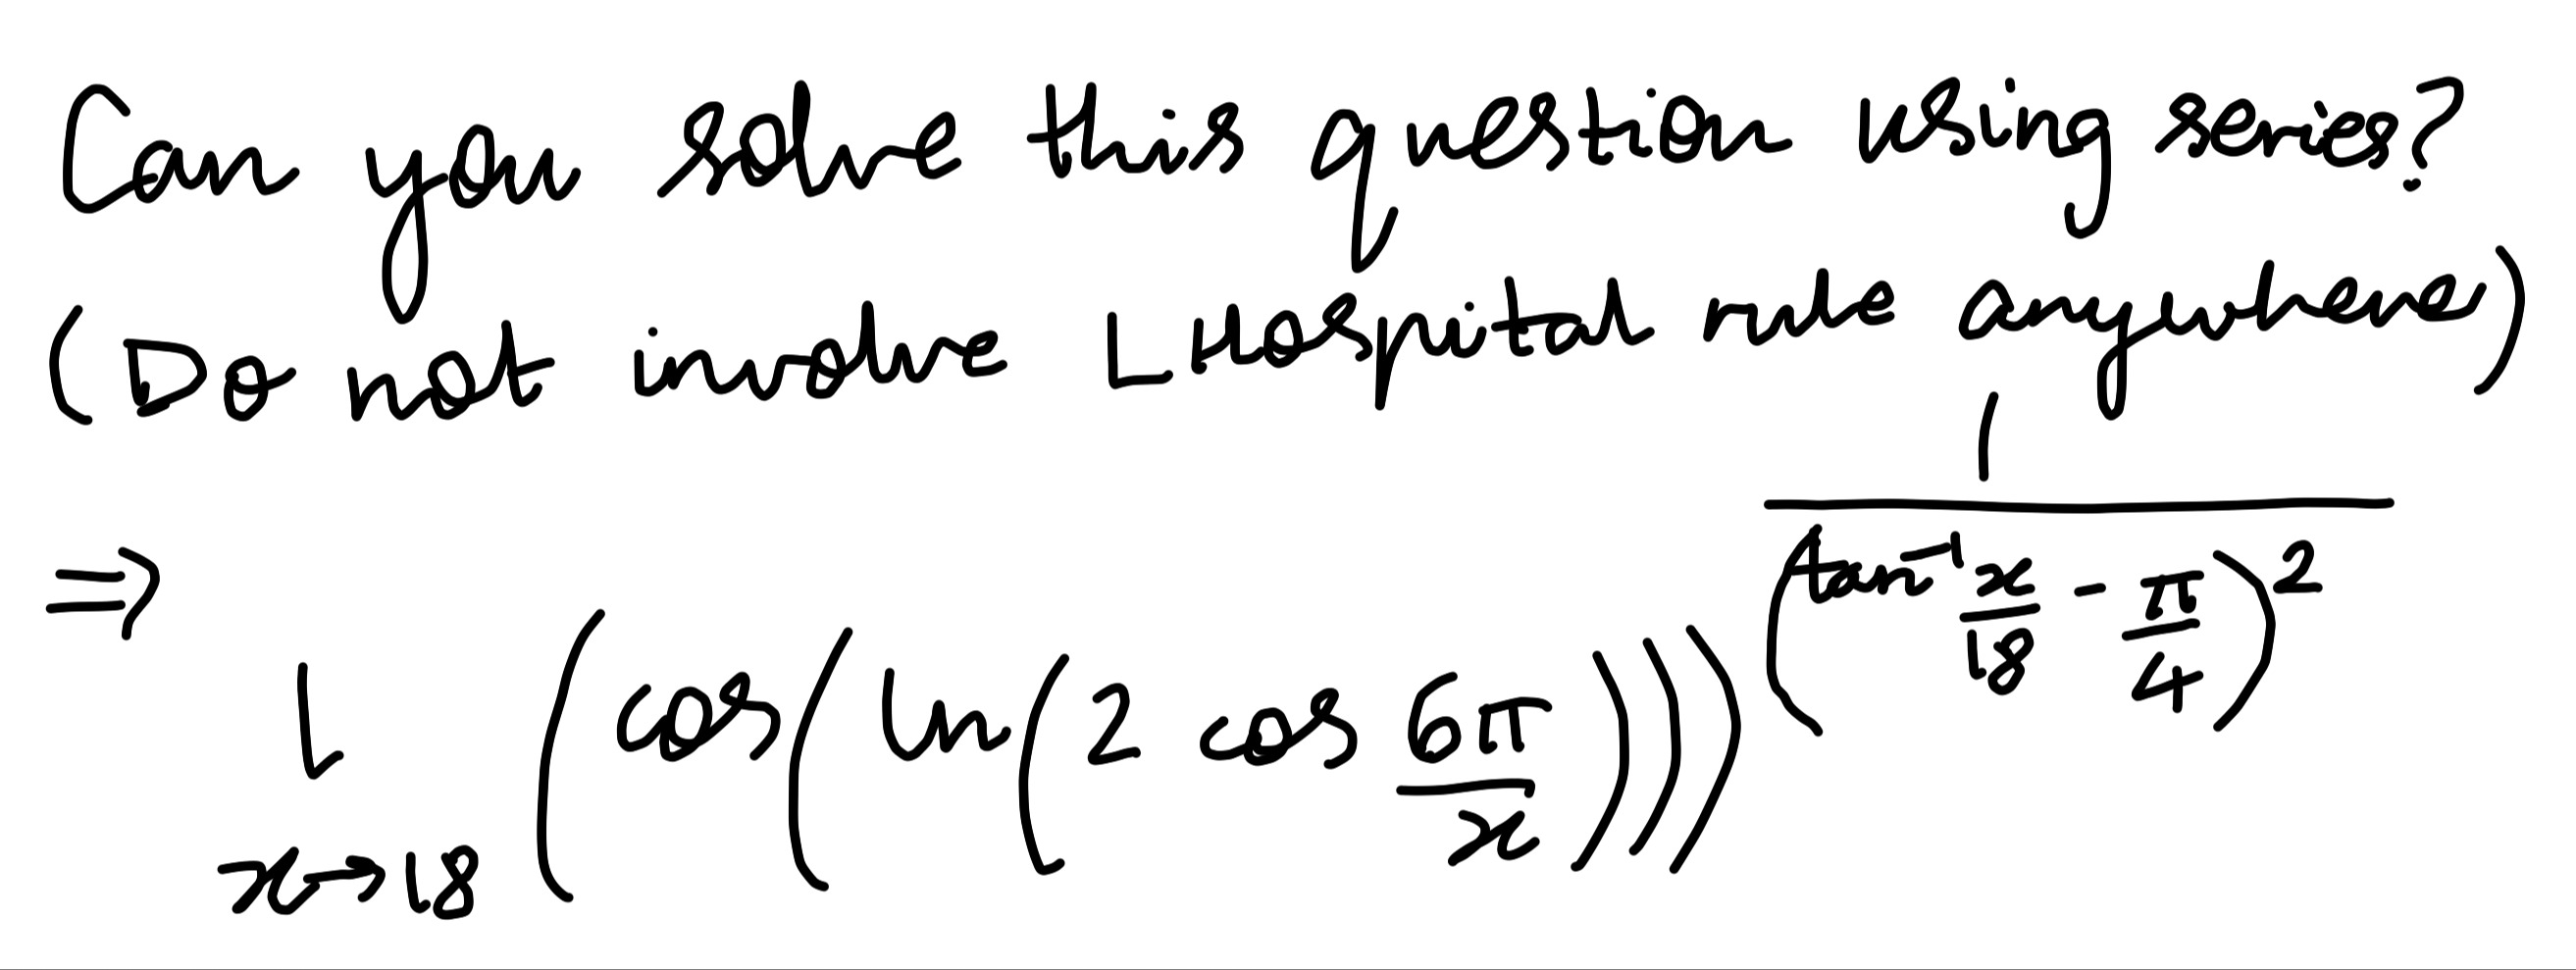 Can you solve this question using series?
(Do not involve LHospital rule anywhere)
⇒ L x→18 (cos(ln(2 cos 6π/x)))^(1/(tan⁻¹ x/18 - π/4)²)